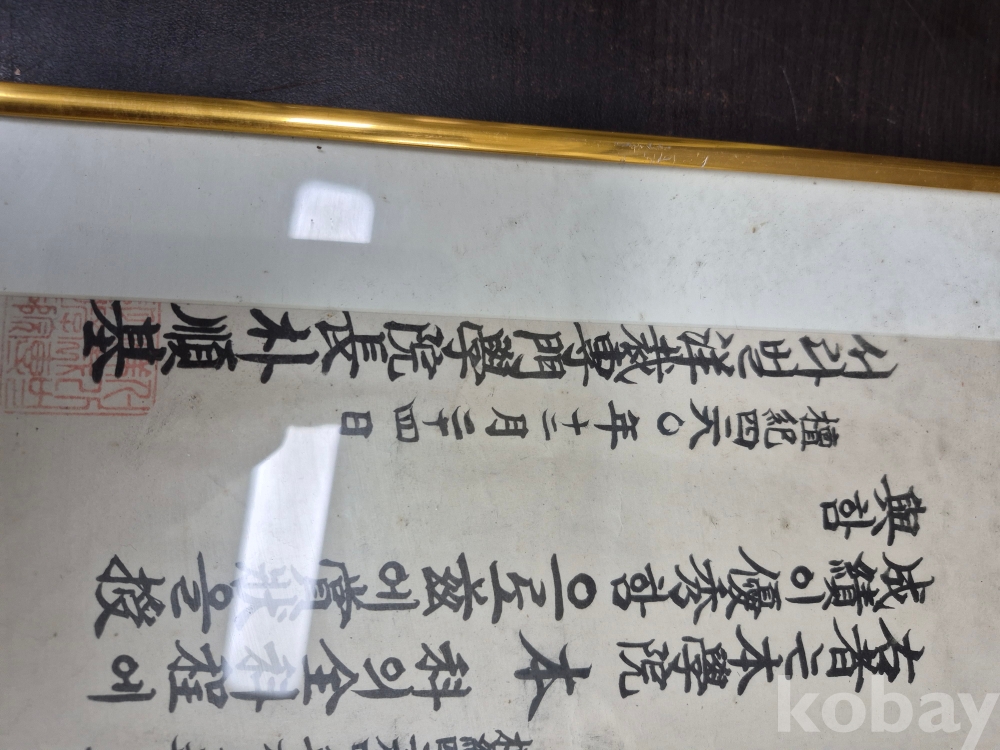 右者는本學院 本科의全科程에
成績이優秀함으로玆에賞狀을授
與함
檀紀四二八〇年十二月二四日
서라벌洋裁專門學院長朴順基
kobay